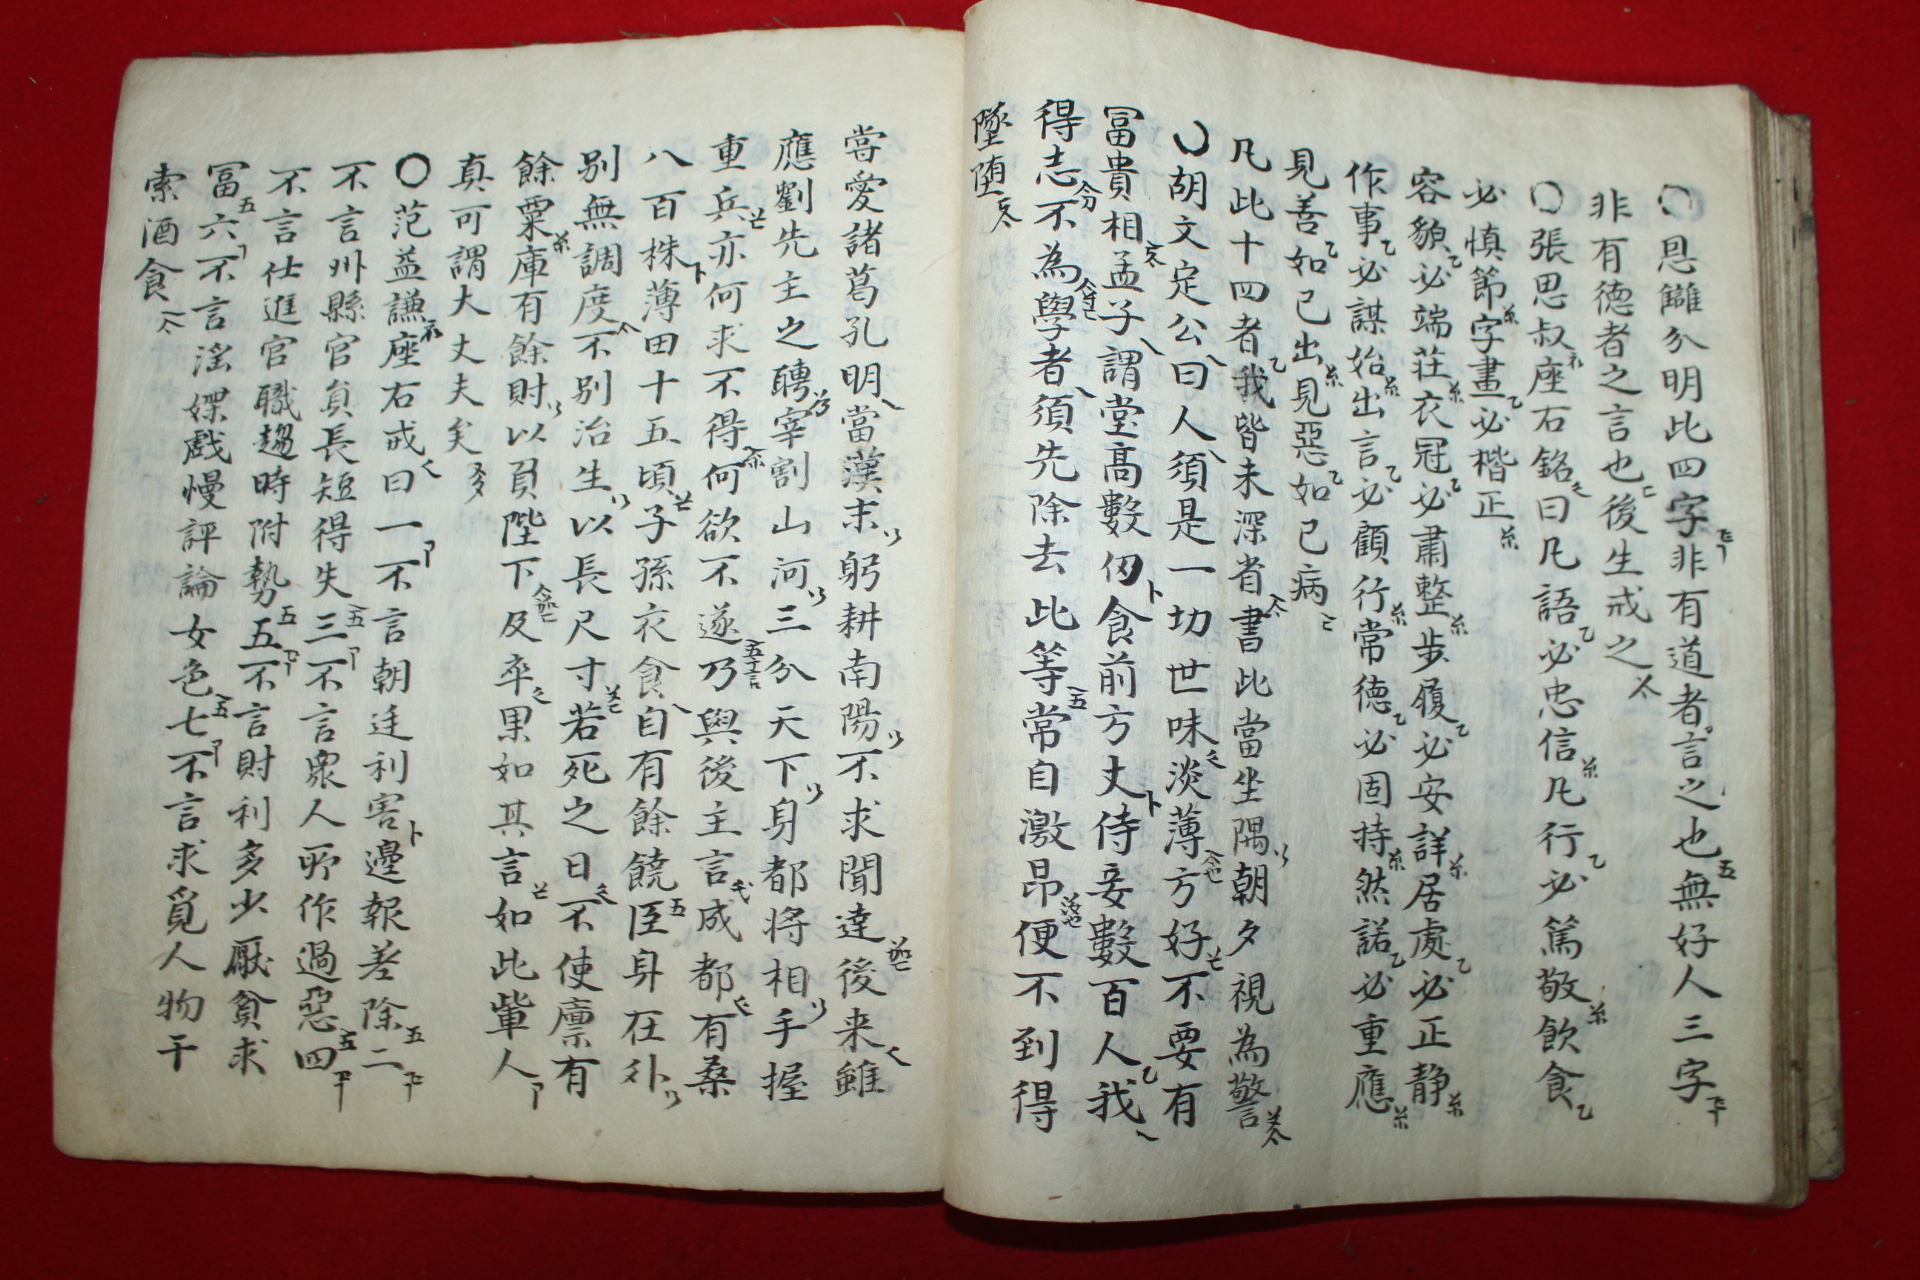 〇恩讎分明此四字非有道者言之也無好人三字
非有德者之言也後生戒之
〇張思叔座右銘曰凡語必忠信凡行必篤敬飲食
必慎節字畫必楷正
容貌必端莊衣冠必肅整步履必安詳居處必正静
作事必謀始出言必顧行常德必固持然諾必重應
見善如己出見惡如己病
凡此十四者我皆未深省書此當坐隅朝夕視為警
〇胡文定公曰人須是一切世味淡薄方好不要有
冨貴相孟子謂堂高數仞食前方丈侍妾數百人我
得志不為學者須先除去此等常自激昂便不到得
墜堕
嘗愛諸葛孔明當漢末躬耕南陽不求聞達後来雖
應劉先主之聘宰割山河三分天下身都將相手握
重兵亦何求不得何欲不遂乃與後主言成都有桑
八百株薄田十五頃子孫衣食自有餘饒臣身在外
別無調度不別治生以長尺寸若死之日不使廪有
餘粟庫有餘財以負陛下及卒果如其言如此輩人
真可謂大丈夫矣
〇范益謙座右戒曰一不言朝廷利害邊報差除二
不言州縣官員長短得失三不言衆人所作過惡四
不言仕進官職趨時附勢五不言財利多少厭貧求
冨六不言淫媟戲慢評論女色七不言求覓人物干
索酒食